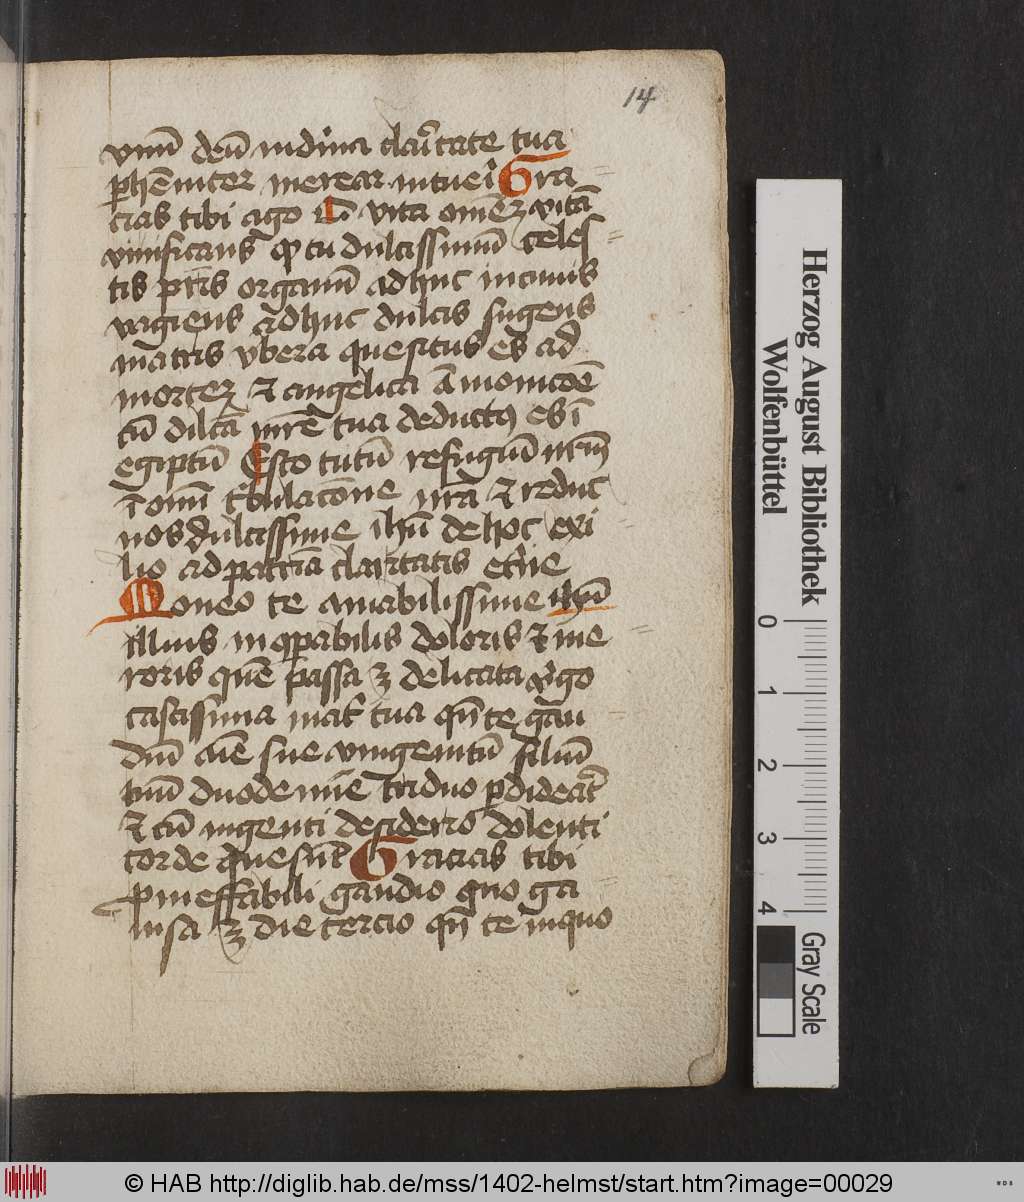 14
vnū deū in diuina claritate tua
phēniter merear intueri Gra
cias tibi ago vita omēʒ vitā
viuificans tu dulcissimū celes
tis ptris organū adhuc in cunis
vagiens adhuc dulcis sugens
matris vbera quesitus es ad
morteʒ et angelica amonicōe
cū dilcā mrē tua deductus es ī
egiptū Esto tutū refugiū nrm̄
ī omī tribulacōne nra et reduc
nos dulcissime ihū de hoc exi
lio ad patriā claritatis etne
Moneo te amabilissime ihū
illius inopabilis doloris et me
roris quē passa ʒ delicata virgo
castissima mater tua qn̄ te gau
diū aīe sue vnigenitū filiū
tuū duodennē triduo pdiderat
et cū ingenti desiderio dolenti
corde quesiuit Gracias tibi
p ineffabili gaudio quo ga
uisa ʒ die tercio qn̄ te inquo
Herzog August Bibliothek
Wolfenbüttel
0 1 2 3 4
Gray Scale
© HAB http://diglib.hab.de/mss/1402-helmst/start.htm?image=00029